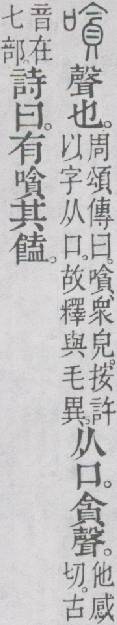 嗿聲也。周頌傳曰。嗿、衆皃。按許以字从口。故釋與毛異。从口。貪聲。他感切。古
音在七部。詩曰。有嗿其饁。